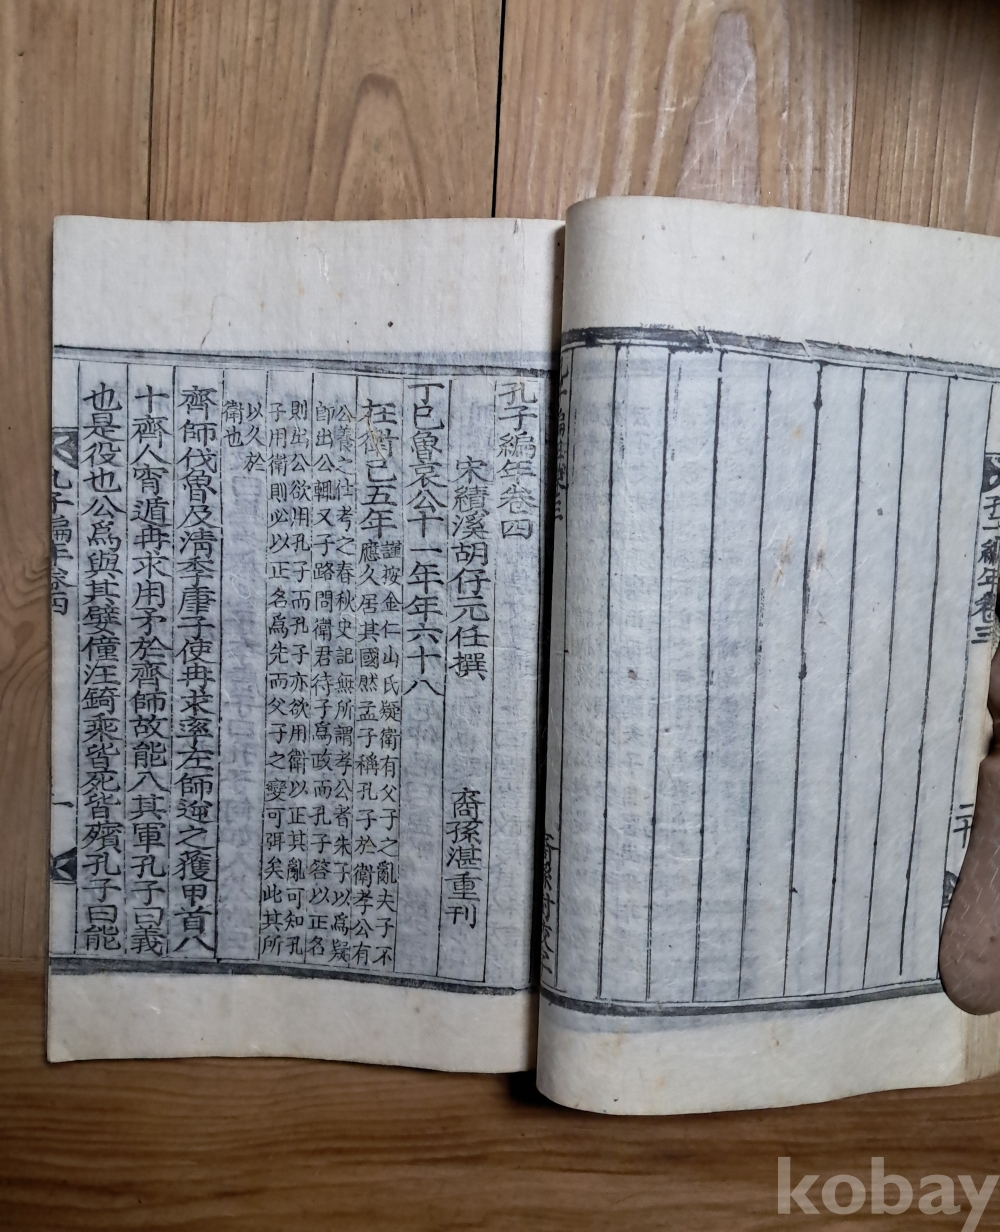 孔子編年卷三
二十
孔子編年卷四
宋績溪胡仔元任撰
裔孫湛重刊
丁巳魯哀公十一年年六十八
在衛已五年
謹按金仁山氏疑衛有父子之亂夫子不
應久居其國然孟子稱孔子於衛孝公有
公養之仕考之春秋史記無所謂孝公者朱子以爲疑
卽出公輒又子路問衛君待子爲政而孔子答以正名
則出公欲用孔子而孔子亦欲用衛以正其亂可知孔
子用衛則必以正名爲先而父子之變可弭矣此其所
以久於
衛也
齊師伐魯及淸季康子使冉求率左師逆之獲甲首八
十齊人宵遁冉求用矛於齊師故能入其軍孔子曰義
也是役也公爲與其嬖僮汪錡乘皆死皆殯孔子曰能
孔子編年卷四
一
kobay